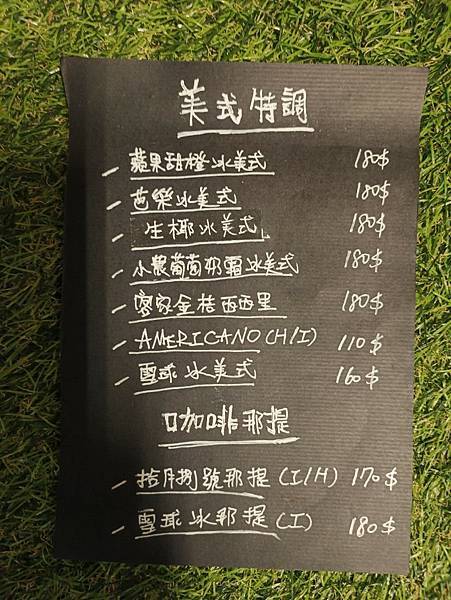 美式特調
蘋果甜橙冰美式 180$
芭樂冰美式 180$
生椰冰美式 180$
小農葡萄奶霜冰美式 180$
客家金桔西西里 180$
AMERICANO (H/I) 110$
雪球冰美式 160$
咖啡那提
拾月捌號那提 (I/H) 170$
雪球冰那提 (I) 180$